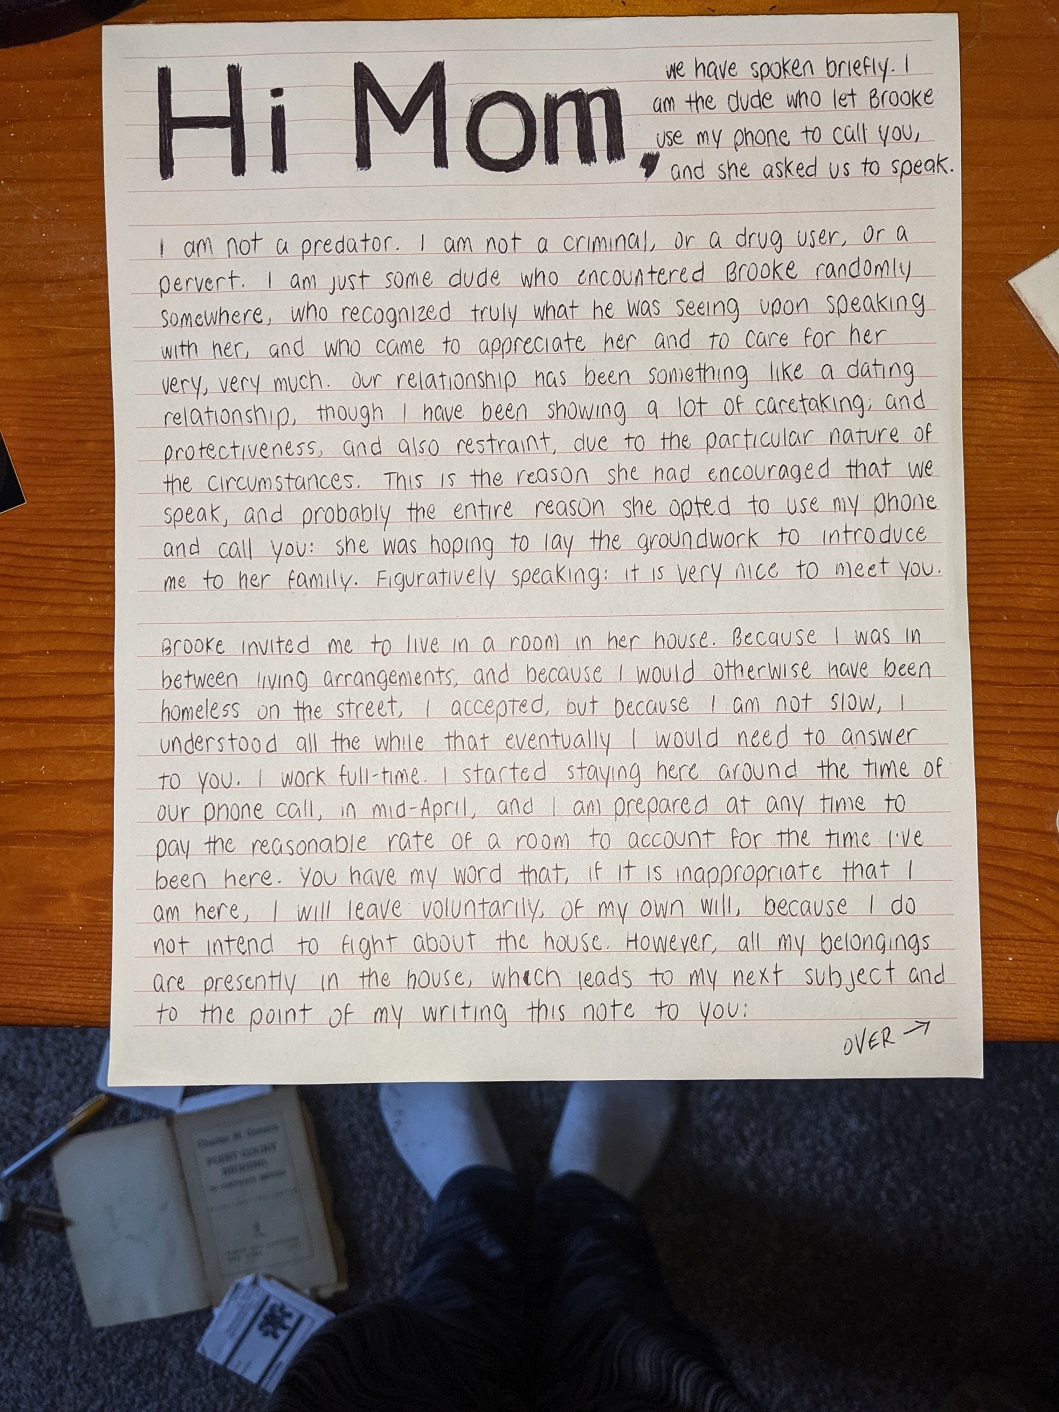 Hi Mom,
we have spoken briefly. I
am the dude who let Brooke
use my phone to call you,
and she asked us to speak.
I am not a predator. I am not a criminal, or a drug user, or a
pervert. I am just some dude who encountered Brooke randomly
somewhere, who recognized truly what he was seeing upon speaking
with her, and who came to appreciate her and to care for her
very, very much. Our relationship has been something like a dating
relationship, though I have been showing a lot of caretaking, and
protectiveness, and also restraint, due to the particular nature of
the circumstances. This is the reason she had encouraged that we
speak, and probably the entire reason she opted to use my phone
and call you: she was hoping to lay the groundwork to introduce
me to her family. Figuratively speaking: it is very nice to meet you.
Brooke invited me to live in a room in her house. Because I was in
between living arrangements, and because I would otherwise have been
homeless on the street, I accepted, but because I am not slow, I
understood all the while that eventually I would need to answer
to you. I work full-time. I started staying here around the time of
our phone call, in mid-April, and I am prepared at any time to
pay the reasonable rate of a room to account for the time I've
been here. You have my word that, if it is inappropriate that I
am here, I will leave voluntarily, of my own will, because I do
not intend to fight about the house. However, all my belongings
are presently in the house, which leads to my next subject and
to the point of my writing this note to you:
OVER →
POINT COUNT
BIDDING